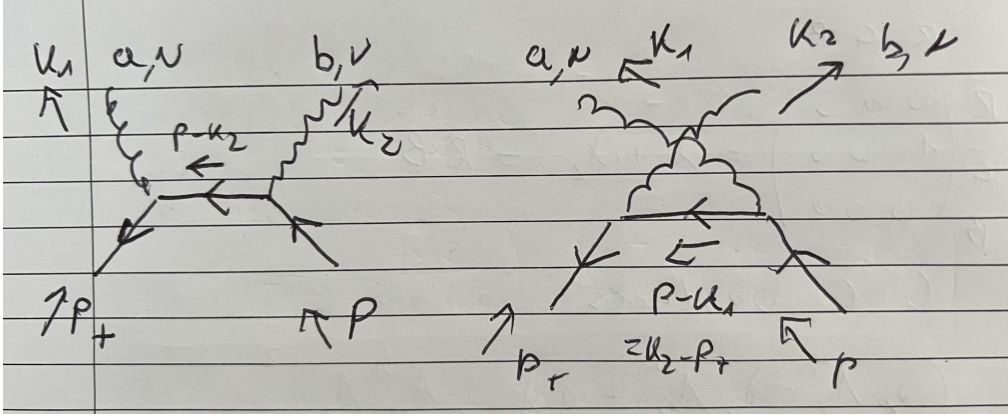 K₁ a,μ b,ν
K₂
p-k₂
P₊ P
a,μ K₁ K₂ b, ν
p-k₁
=k₂-p₊
p₊ p